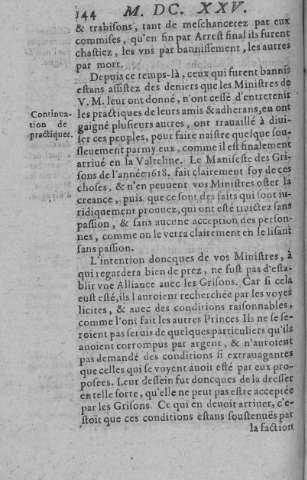 144 M. DC. XXV.
& trahisons, tant de meschancerez par eux
commises, qu'en fin par Arrest final ils furent
chastiez, les vns par bannissement, les autres
par mort.
Depuis ce temps-là, ceux qui furent bannis
estans assistez des deniers que les Ministres de
V. M. leur ont donné, n'ont cessé d'entretenir
Continuation de practiques.
les practiques de leurs amis & adherans, eu ont
gaigné plusieurs autres, ont trauaillé à diui-
ser ces peuples, pour faire naistre quelque sou-
sleuement parmy eux, comme il est finalement
arriué en la Valteline. Le Manifeste des Gri-
sons de l'année 1618. fait clairement foy de ces
choses, & n'en peuuent vos Ministres oster la
creance, puis que ce sont des faits qui sont iu-
ridiquement prouuez, qui ont esté traictez sans
passion, & sans aucune acception des person-
nes, comme on le verra clairement en le lisant
sans passion.
L'intention doncques de vos Ministres, à
qui regardera bien de prez, ne fust pas d'esta-
blir vne Alliance auec les Grisons. Car si cela
eust esté, ils l'auroient recherchée par les voyes
licites, & auec des conditions raisonnables,
comme l'ont fait les autres Princes Ils ne se se-
roient pas seruis de quelques particuliers qu'ils
auoient corrompus par argent, & n'auroient
pas demandé des conditions si extrauagantes
que celles qui se voyent auoir esté par eux pro-
posees. Leur dessein fut doncques de la dresser
en telle sorte, qu'elle ne peut pas estre acceptée
par les Grisons. Ce qui en deuoit arriuer, c'e-
stoit que ces conditions estans soustenuës par
la faction